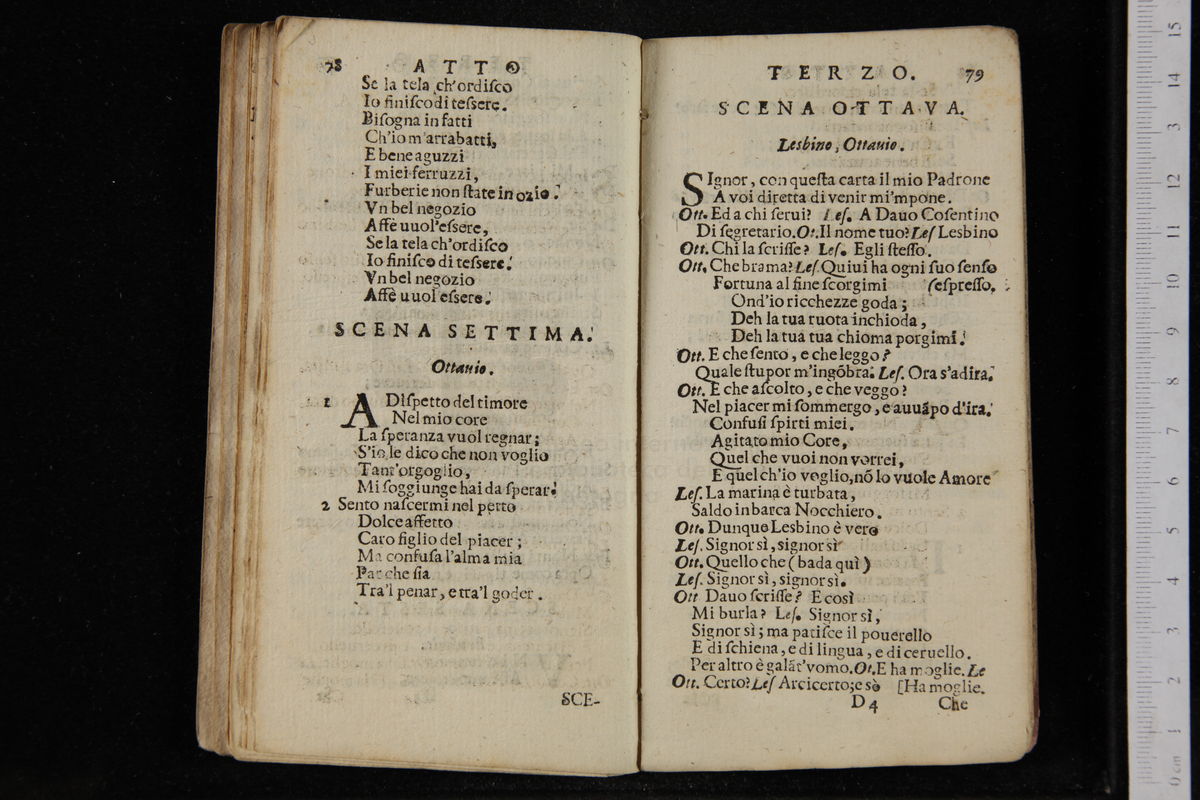 78 ATTO
Se la tela ch'ordiſco
Io finiſco di teſsere.
Biſogna in fatti
Ch'io m'arrabatti,
E bene aguzzi
I miei ferruzzi,
Furberie non ſtate in ozio.
Vn bel negozio
Affè uuol'eſsere,
Se la tela ch'ordiſco
Io finiſco di teſsere.
Vn bel negozio
Affè uuol'eſsere.
SCENA SETTIMA.
Ottauio.
1 A Diſpetto del timore
Nel mio core
La ſperanza vuol regnar;
S'io le dico che non voglio
Tant'orgoglio,
Mi ſoggiunge hai da ſperar.
2 Sento naſcermi nel petto
Dolce affetto
Caro figlio del piacer;
Ma confuſa l'alma mia
Par che ſia
Tra'l penar, e tra'l goder.
SCE-
TERZO. 79
SCENA OTTAVA.
Lesbino, Ottauio.
SIgnor, con queſta carta il mio Padrone
A voi diretta di venir mi'mpone.
Ott. Ed a chi ſerui? Leſ. A Dauo Coſentino
Di ſegretario. Ot. Il nome tuo? Leſ Lesbino
Ott. Chi la ſcriſſe? Leſ. Egli ſteſſo.
Ott. Che brama? Leſ. Quiui ha ogni ſuo ſenſo
Fortuna al fine ſcorgimi (eſpreſſo.
Ond'io ricchezze goda;
Deh la tua ruota inchioda,
Deh la tua tua chioma porgimi.
Ott. E che ſento, e che leggo?
Quale ſtupor m'ingõbra. Leſ. Ora s'adira.
Ott. E che aſcolto, e che veggo?
Nel piacer mi ſommergo, e auuãpo d'ira.
Confuſi ſpirti miei.
Agitato mio Core,
Quel che vuoi non vorrei,
E quel ch'io voglio, nõ lo vuole Amore
Leſ. La marina è turbata,
Saldo in barca Nocchiero.
Ott. Dunque Lesbino è vero
Leſ. Signor sì, signor sì
Ott. Quello che (bada quì)
Leſ. Signor sì, signor sì.
Ott Dauo ſcriſſe? E così
Mi burla? Leſ. Signor sì,
Signor sì; ma patiſce il pouerello
E di ſchiena, e di lingua, e di ceruello.
Per altro è galãt'vomo. Ot. E ha moglie. Le
Ott. Certo? Leſ Arcicerto; e sò [Ha moglie.
D 4 Che